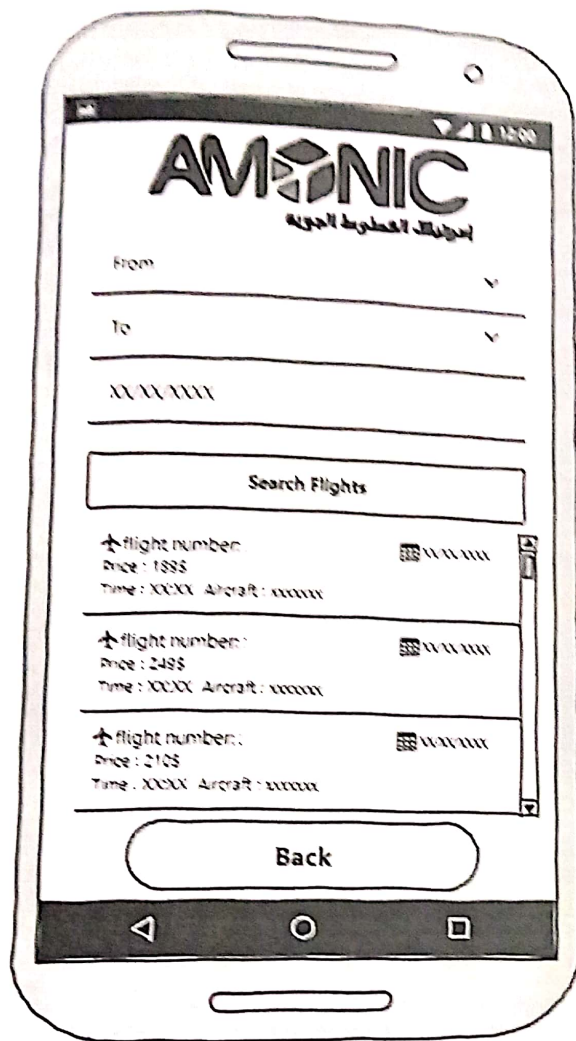 12:00
AMONIC
الخطوط الجوية
From
To
XX/XX/XXXX
Search Flights
flight number:
XX/XX/XXXX
Price : 189$
Time : XX:XX Aircraft : xxxxxxx
flight number: :
XX/XX/XXXX
Price : 249$
Time : XX:XX Aircraft : xxxxxxx
flight number: :
XX/XX/XXXX
Price : 210$
Time : XX:XX Aircraft : xxxxxxx
Back